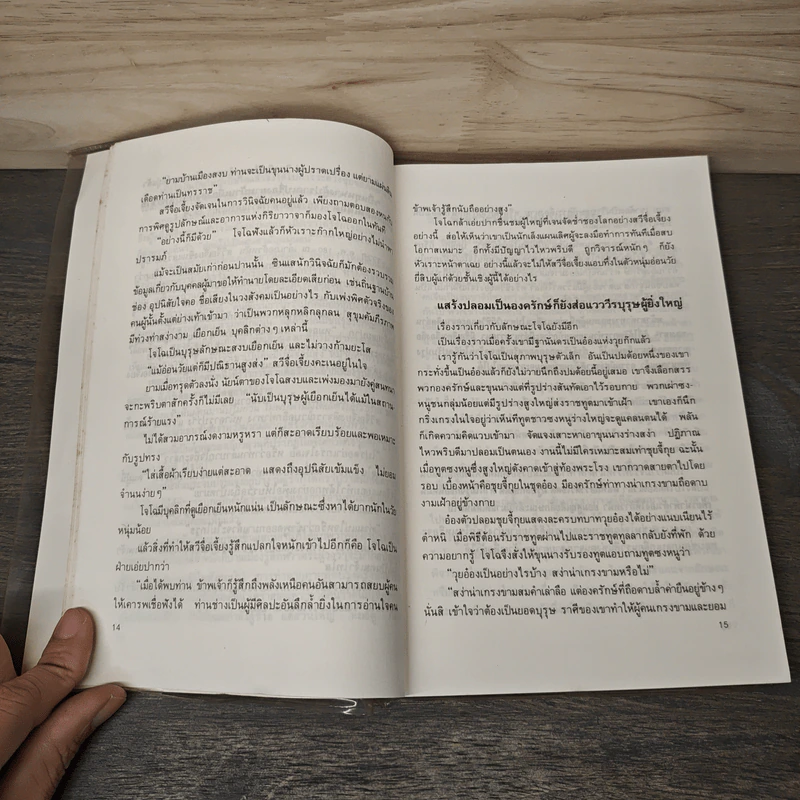 "ยามบ้านเมืองสงบ ท่านจะเป็นขุนนางผู้ปราดเปรื่อง แต่ยามแผ่นดิน
เดือดท่านเป็นทรราช"
สวีจื่อเจี้ยงจัดเจนในการวินิจฉัยคนอยู่แล้ว เพียงถามตอบสองหน
การพิศดูรูปลักษณ์และอาการแห่งกิริยาวาจาก็มองโจโฉออกในทันที
"อย่างนี้ก็มีด้วย" โจโฉฟังแล้วก็หัวเราะก๊ากใหญ่อย่างไม่นำพา
ปรารมภ์
แม้จะเป็นสมัยเก่าก่อนปานนั้น ซินแสนักวินิจฉัยก็มักต้องรวบรวม
ข้อมูลเกี่ยวกับบุคคลผู้มาขอให้ทำนายโดยละเอียดเสียก่อน เช่นถิ่นฐานบ้าน
ช่อง อุปนิสัยใจคอ ชื่อเสียงในวงสังคมเป็นอย่างไร กับเพ่งพิศตัวจริงของ
คนผู้นั้นตั้งแต่ย่างเท้าเข้ามา ว่าเป็นพวกหลุกหลิกลุกลน สุขุมคัมภีรภาพ
มีท่วงท่าสง่างาม เยือกเย็น บุคลิกต่างๆ เหล่านี้
โจโฉเป็นบุรุษลักษณะสงบเยือกเย็น และไม่วางก้ามยะโส
"แม้อ่อนวัยแต่ก็มีปณิธานสูงส่ง" สวีจื่อเจี้ยงคะเนอยู่ในใจ
ยามเมื่อทรุดตัวลงนั่ง นัยน์ตาของโจโฉสงบและเพ่งมองมายังคู่สนทนา
จะกะพริบตาสักครั้งก็ไม่มีเลย "นับเป็นบุรุษผู้เยือกเย็นได้แม้ในสถาน
การณ์ร้ายแรง"
ไม่ได้สวมอาภรณ์งดามหรูหรา แต่ก็สะอาดเรียบร้อยและพอเหมาะ
กับรูปทรง
"ใส่เสื้อผ้าเรียบง่ายแต่สะอาด แสดงถึงอุปนิสัยเข้มแข็ง ไม่ยอม
จำนนง่ายๆ"
โจโฉมีบุคลิกที่ดูเยือกเย็นหนักแน่น เป็นลักษณะซึ่งหาได้ยากนักในวัย
หนุ่มน้อย
แล้วสิ่งที่ทำให้สวีจื่อเจี้ยงรู้สึกแปลกใจหนักเข้าไปอีกก็คือ โจโฉเป็น
ฝ่ายเอ่ยปากว่า
"เมื่อได้พบท่าน ข้าพเจ้าก็รู้สึกถึงพลังเหนือคนอันสามารถสยบผู้คน
ให้เคารพเชื่อฟังได้ ท่านช่างเป็นผู้มีศิลปะอันลึกล้ำยิ่งในการอ่านใจคน
14
ข้าพเจ้ารู้สึกนับถืออย่างสูง"
โจโฉกล้าเอ่ยปากชื่นชมผู้ใหญ่ที่เจนจัดช่ำชองโลกอย่างสวีจื่อเจี้ยง
อย่างนี้ ส่อให้เห็นว่าเขาเป็นนักเล็งแผนเลิศผู้จะลงมือทำการทันทีเมื่อสบ
โอกาสเหมาะ อีกทั้งมีปัญญาไวไหวพริบดี ถูกวิจารณ์หนักๆ ก็ยัง
หัวเราะหน้าตาเฉย อย่างนี้แล้วจะไม่ให้สวีจื่อเจี้ยงแอบทึ่งในตัวหนุ่มอ่อนวัย
ยี่สิบผู้แก่ด้วยชั้นเชิงผู้นี้ได้อย่างไร
แสร้งปลอมเป็นองครักษ์ก็ยังส่อแวววีรบุรุษผู้ยิ่งใหญ่
เรื่องราวเกี่ยวกับลักษณะโจโฉยังมีอีก
เป็นเรื่องราวเมื่อครั้งเขามีฐานันดรเป็นอ๋องแห่งวุยก๊กแล้ว
เรารู้กันว่าโจโฉเป็นสุภาพบุรุษตัวเล็ก อันเป็นปมด้อยหนึ่งของเขา
กระทั่งขึ้นเป็นอ๋องแล้วก็ยังไม่วายนึกถึงปมด้อยนี้อยู่เสมอ เขาจึงเลือกสรร
พวกองครักษ์และขุนนางแต่ที่รูปร่างสันทัดเอาไว้รอบกาย พวกเผ่าซง-
หนูชนกลุ่มน้อยแต่มีรูปร่างสูงใหญ่ส่งราชทูตมาเข้าเฝ้า เขาเองก็นึก
กริ่งเกรงในใจอยู่ว่าเห็นทีทูตชาวซงหนูร่างใหญ่จะดูแคลนตนได้ พลัน
ก็เกิดความคิดแวบเข้ามา จัดแจงเสาะหาเอาขุนนางร่างสง่า ปฏิภาณ
ไหวพริบดีมาปลอมเป็นตนเอง งานนี้ไม่มีใครเหมาะสมเท่าชุยจี้กุย ฉะนั้น
เมื่อทูตซงหนูซึ่งสูงใหญ่ดังคาดเข้าสู่ท้องพระโรง เขากวาดสายตาไปโดย
รอบ เบื้องหน้าคือชุยจี้กุยในชุดอ๋อง มีองครักษ์ท่าทางน่าเกรงขามถือดาบ
งามเฝ้าอยู่ข้างกาย
อ๋องตัวปลอมชุยจี้กุยแสดงละครบทบาทวุยอ๋องได้อย่างแนบเนียนไร้
ตำหนิ เมื่อพิธีต้อนรับราชทูตผ่านไปและราชทูตทูลลากลับยังที่พัก ด้วย
ความอยากรู้ โจโฉจึงสั่งให้ขุนนางรับรองทูตแอบถามทูตซงหนูว่า
"วุยอ๋องเป็นอย่างไรบ้าง สง่าน่าเกรงขามหรือไม่"
"สง่าน่าเกรงขามสมคำเล่าลือ แต่องครักษ์ที่ถือดาบล้ำค่ายืนอยู่ข้างๆ
นั่นสิ เข้าใจว่าต้องเป็นยอดบุรุษ ราศีของเขาทำให้ผู้คนเกรงขามและยอม
15